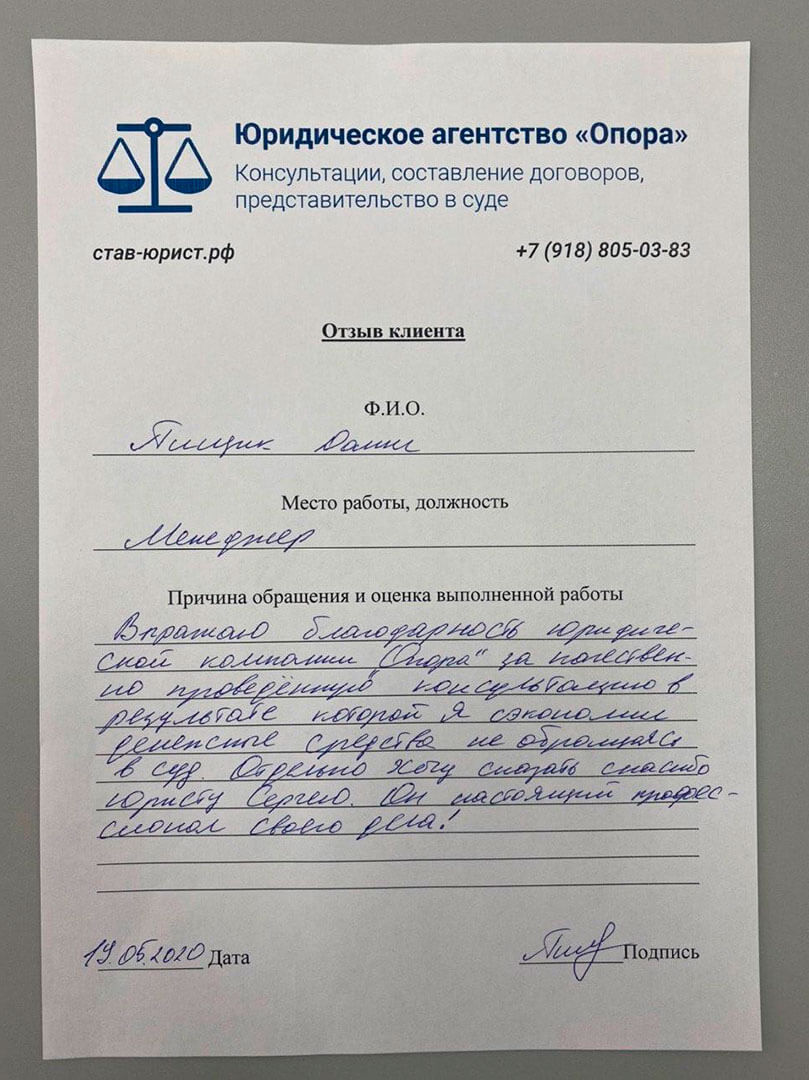 Юридическое агентство «Опора»
Консультации, составление договоров,
представительство в суде
став-юрист.рф
+7 (918) 805-03-83
Отзыв клиента
Ф.И.О.
Пищик
Место работы, должность
Менеджер
Причина обращения и оценка выполненной работы
Выражаю благодарность юридиче-
ской компании "Опора" за качествен-
но проведённую консультацию в
результате которой я сэкономил
денежные средства не обращаясь
в суд. Отдельно хочу сказать спасибо
юристу Сергею. Он настоящий профес-
сионал своего дела!
19.05.2020 Дата
Подпись